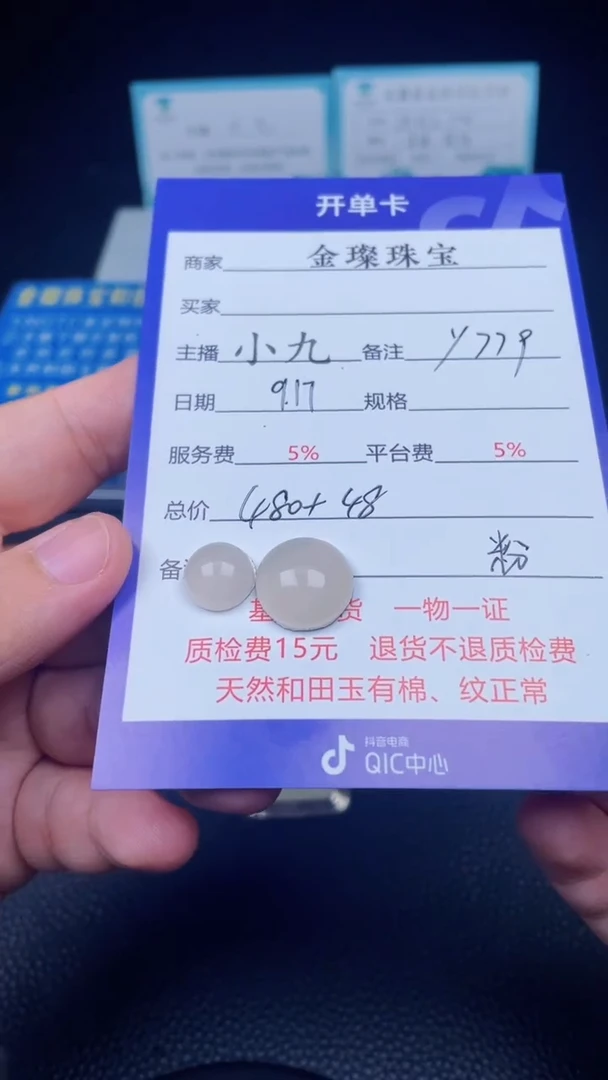 开单卡
商家 金璨珠宝
买家
主播 小九 备注 Y779
日期 9.17 规格
服务费 5% 平台费 5%
总价 480+48
备 粉
基 货 一物一证
质检费15元 退货不退质检费
天然和田玉有棉、纹正常
抖音电商
QIC中心